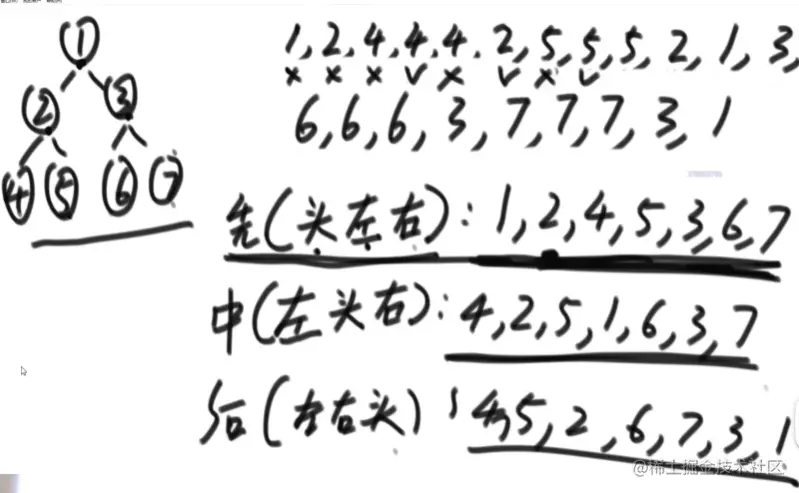 1
2 3
4 5 6 7
1, 2, 4, 4, 4, 2, 5, 5, 5, 2, 1, 3,
× × × ✓ × ✓ × ✓
6, 6, 6, 3, 7, 7, 7, 3, 1
先(头左右): 1, 2, 4, 5, 3, 6, 7
中(左头右): 4, 2, 5, 1, 6, 3, 7
后(左右头): 4, 5, 2, 6, 7, 3, 1
@稀土掘金技术社区